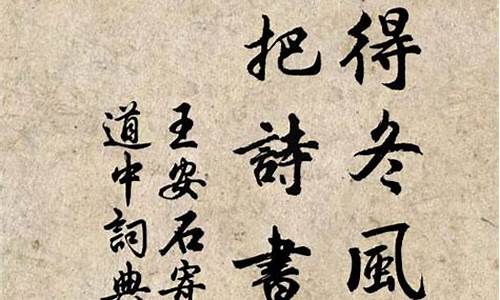 得冬風
把詩書
王安石寄
道中詞典